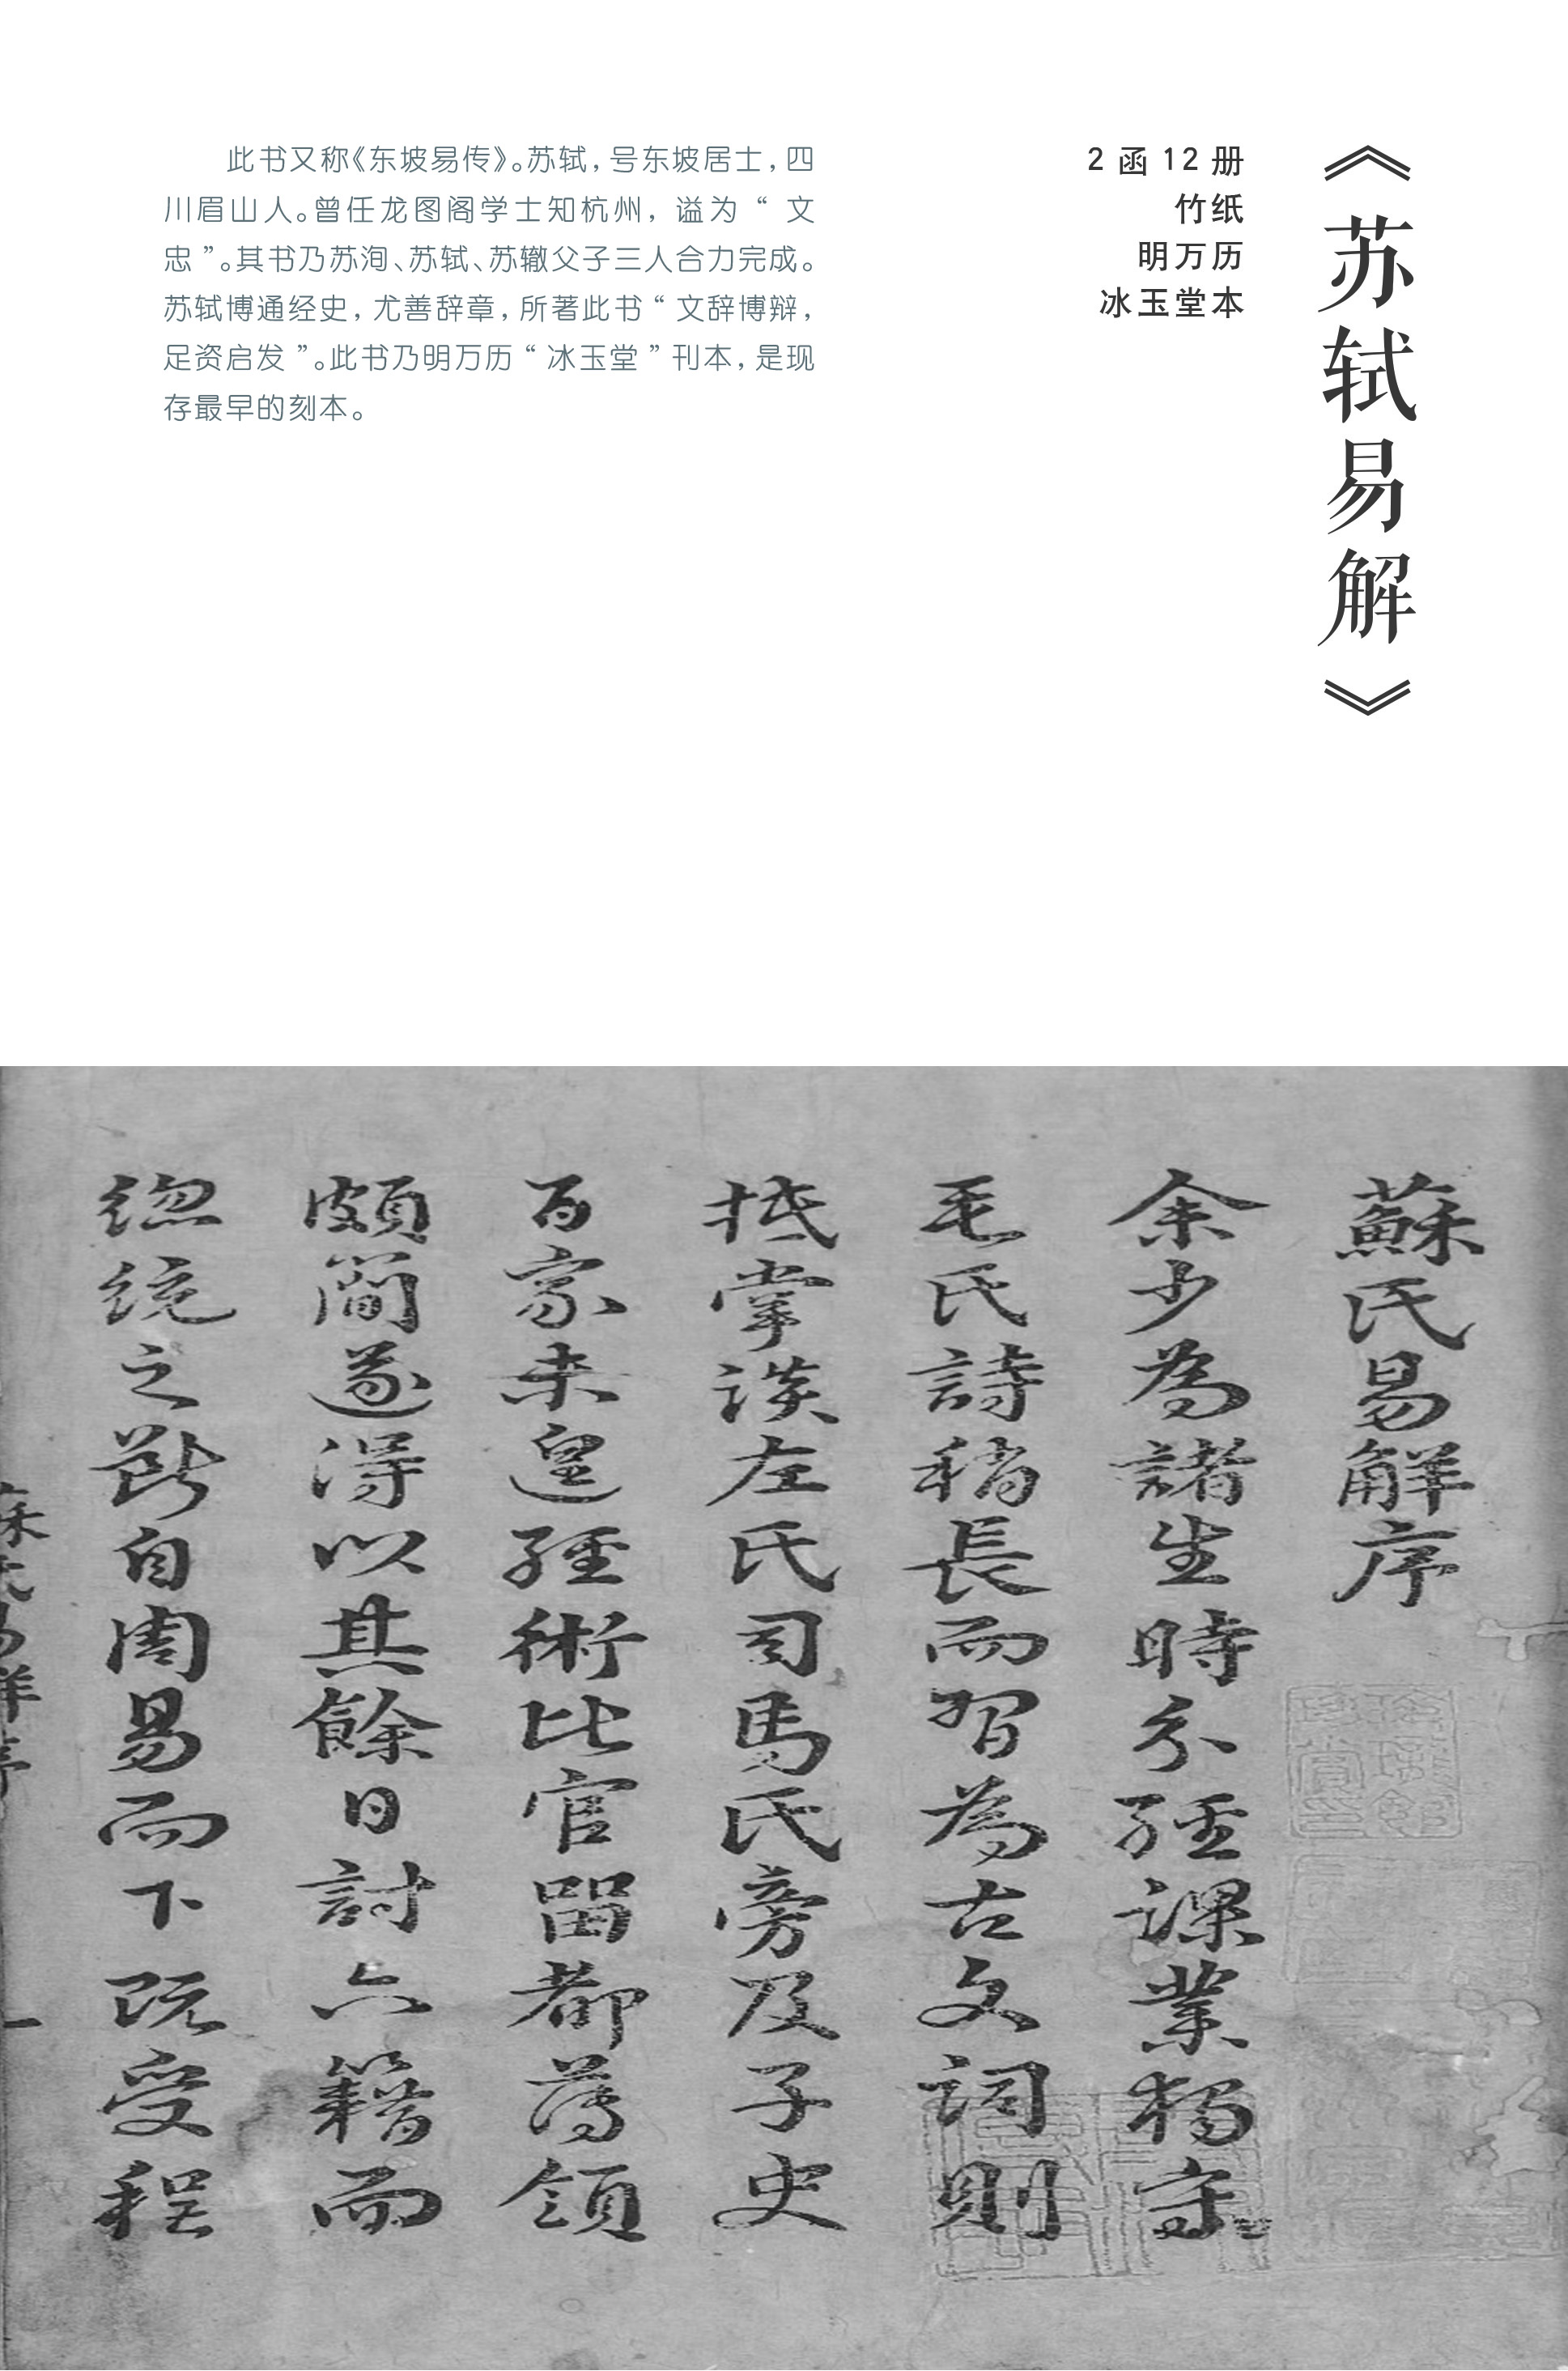 《苏轼易解》
2 函 12 册
竹纸
明万历
冰玉堂本
此书又称《东坡易传》。苏轼，号东坡居士，四
川眉山人。曾任龙图阁学士知杭州，谥为“文
忠”。其书乃苏洵、苏轼、苏辙父子三人合力完成。
苏轼博通经史，尤善辞章，所著此书“文辞博辩，
足资启发”。此书乃明万历“冰玉堂”刊本，是现
存最早的刻本。
蘇氏易解序
余少為諸生時分經課業獨守
毛氏詩稍長而習為古文詞則
抵掌談左氏司馬氏旁及子史
百家未遑經術比官留都簿領
頗簡遂得以其餘日討六籍而
總統之斷自周易而下既受程